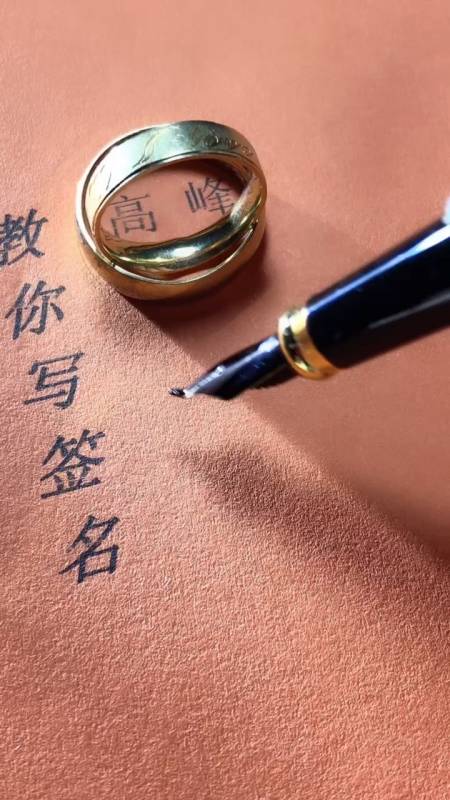 高峰
教你写签名